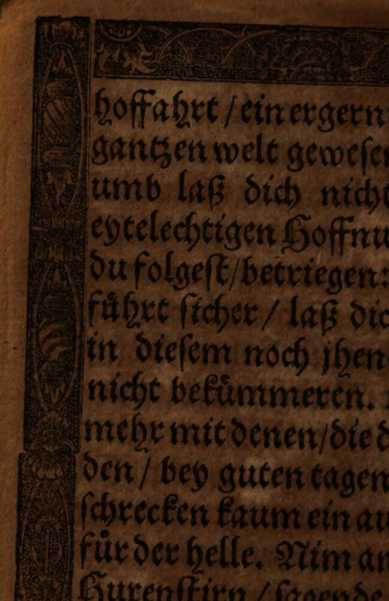 hoffahrt / ein ergern
gantzen welt gewesen
umb laß dich nicht
eytelechtigen Hoffnu
du folgest / betriegen:
fůhrt sicher / laß dic
in diesem noch jhen
nicht bekümmeren.
mehr mit denen / die d
den / bey guten tagen
schrecken kaum ein au
für der helle. Nim an
Hurenstirn / sagende